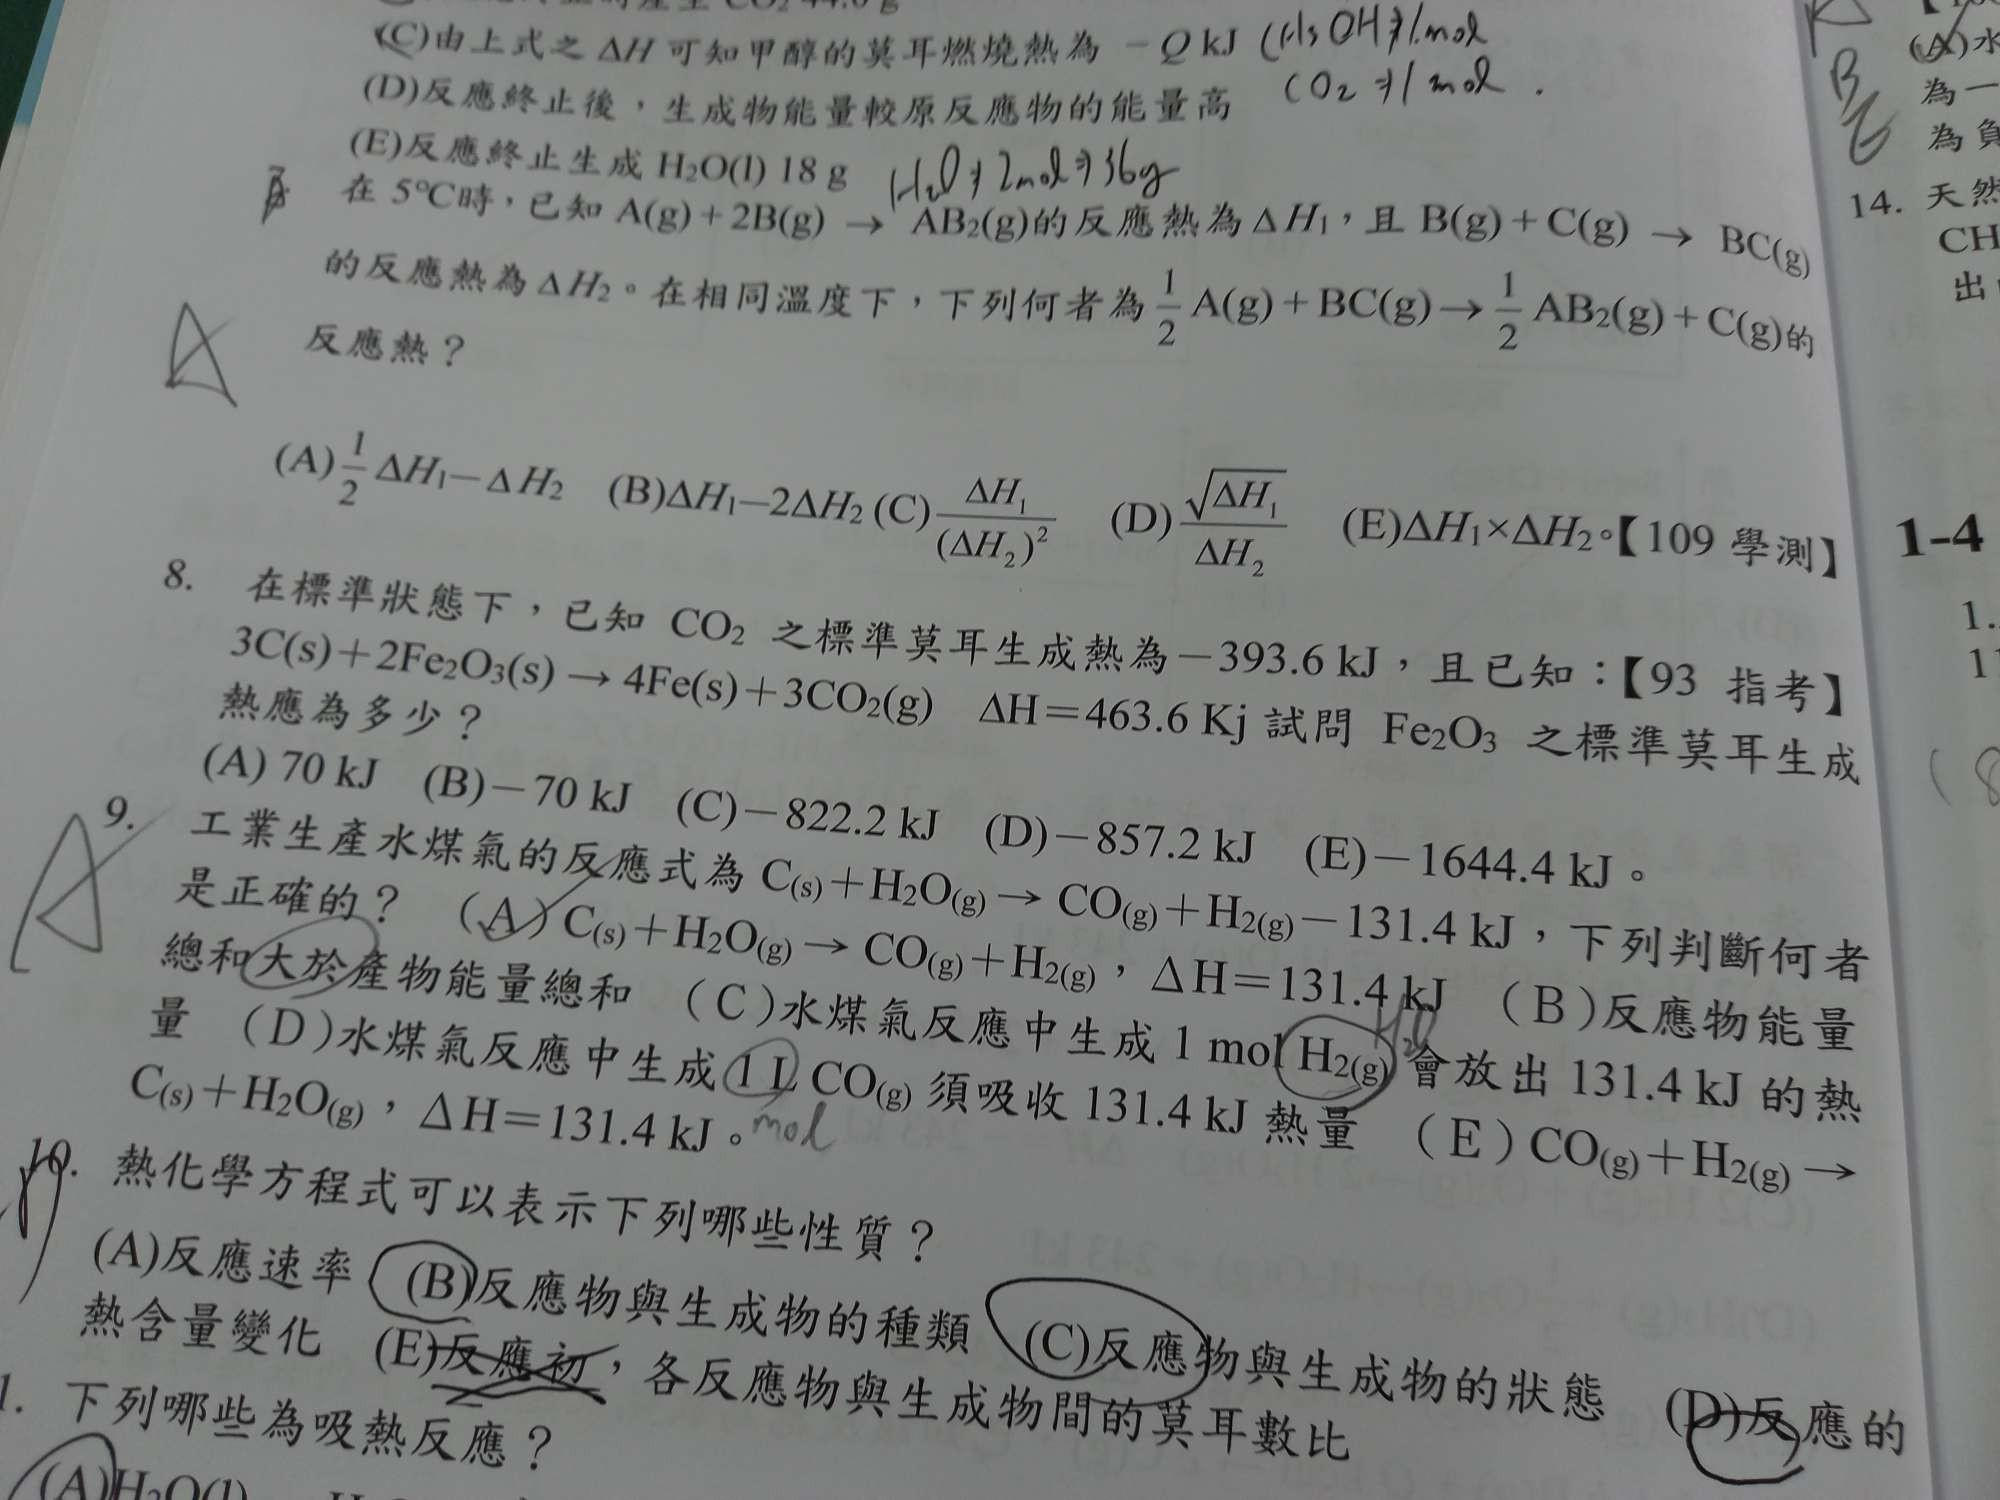 CO₂ 44.0 g
(C)由上式之 ΔH 可知甲醇的莫耳燃燒熱為 −Q kJ
(D)反應終止後，生成物能量較原反應物的能量高
CO₂ 1 mol
(E)反應終止生成 H₂O(l) 18 g
H₂O 2mol 36g
在 5℃時，已知 A(g)+2B(g) → AB₂(g)的反應熱為 ΔH₁，且 B(g)+C(g) → BC(g)
的反應熱為 ΔH₂。在相同溫度下，下列何者為 1/2 A(g)+BC(g)→1/2 AB₂(g)+C(g)的
反應熱？
A
(A) 1/2 ΔH₁−ΔH₂ (B)ΔH₁−2ΔH₂ (C) ΔH₁/(ΔH₂)² (D) √ΔH₁/ΔH₂ (E)ΔH₁×ΔH₂。【109 學測】
8. 在標準狀態下，已知 CO₂ 之標準莫耳生成熱為−393.6 kJ，且已知：【93 指考】
3C(s)+2Fe₂O₃(s)→4Fe(s)+3CO₂(g) ΔH＝463.6 Kj 試問 Fe₂O₃ 之標準莫耳生成
熱應為多少？
(A) 70 kJ (B)−70 kJ (C)−822.2 kJ (D)−857.2 kJ (E)−1644.4 kJ。
A
9. 工業生產水煤氣的反應式為 C(s)+H₂O(g)→CO(g)+H₂(g)−131.4 kJ，下列判斷何者
是正確的？ (A) C(s)+H₂O(g)→CO(g)+H₂(g)，ΔH＝131.4 kJ (B)反應物能量
總和大於產物能量總和 (C)水煤氣反應中生成 1 mol H₂(g) 會放出 131.4 kJ 的熱
量 (D)水煤氣反應中生成 1 L CO(g) 須吸收 131.4 kJ 熱量 (E) CO(g)+H₂(g)→
mol
C(s)+H₂O(g)，ΔH＝131.4 kJ。
10. 熱化學方程式可以表示下列哪些性質？
(A)反應速率 (B)反應物與生成物的種類 (C)反應物與生成物的狀態 (D)反應的
熱含量變化 (E)反應初，各反應物與生成物間的莫耳數比
1. 下列哪些為吸熱反應？
(A)H₂O(l)
B
E
(A)水
為一
為負
14. 天然
CH
出
1-4
1.